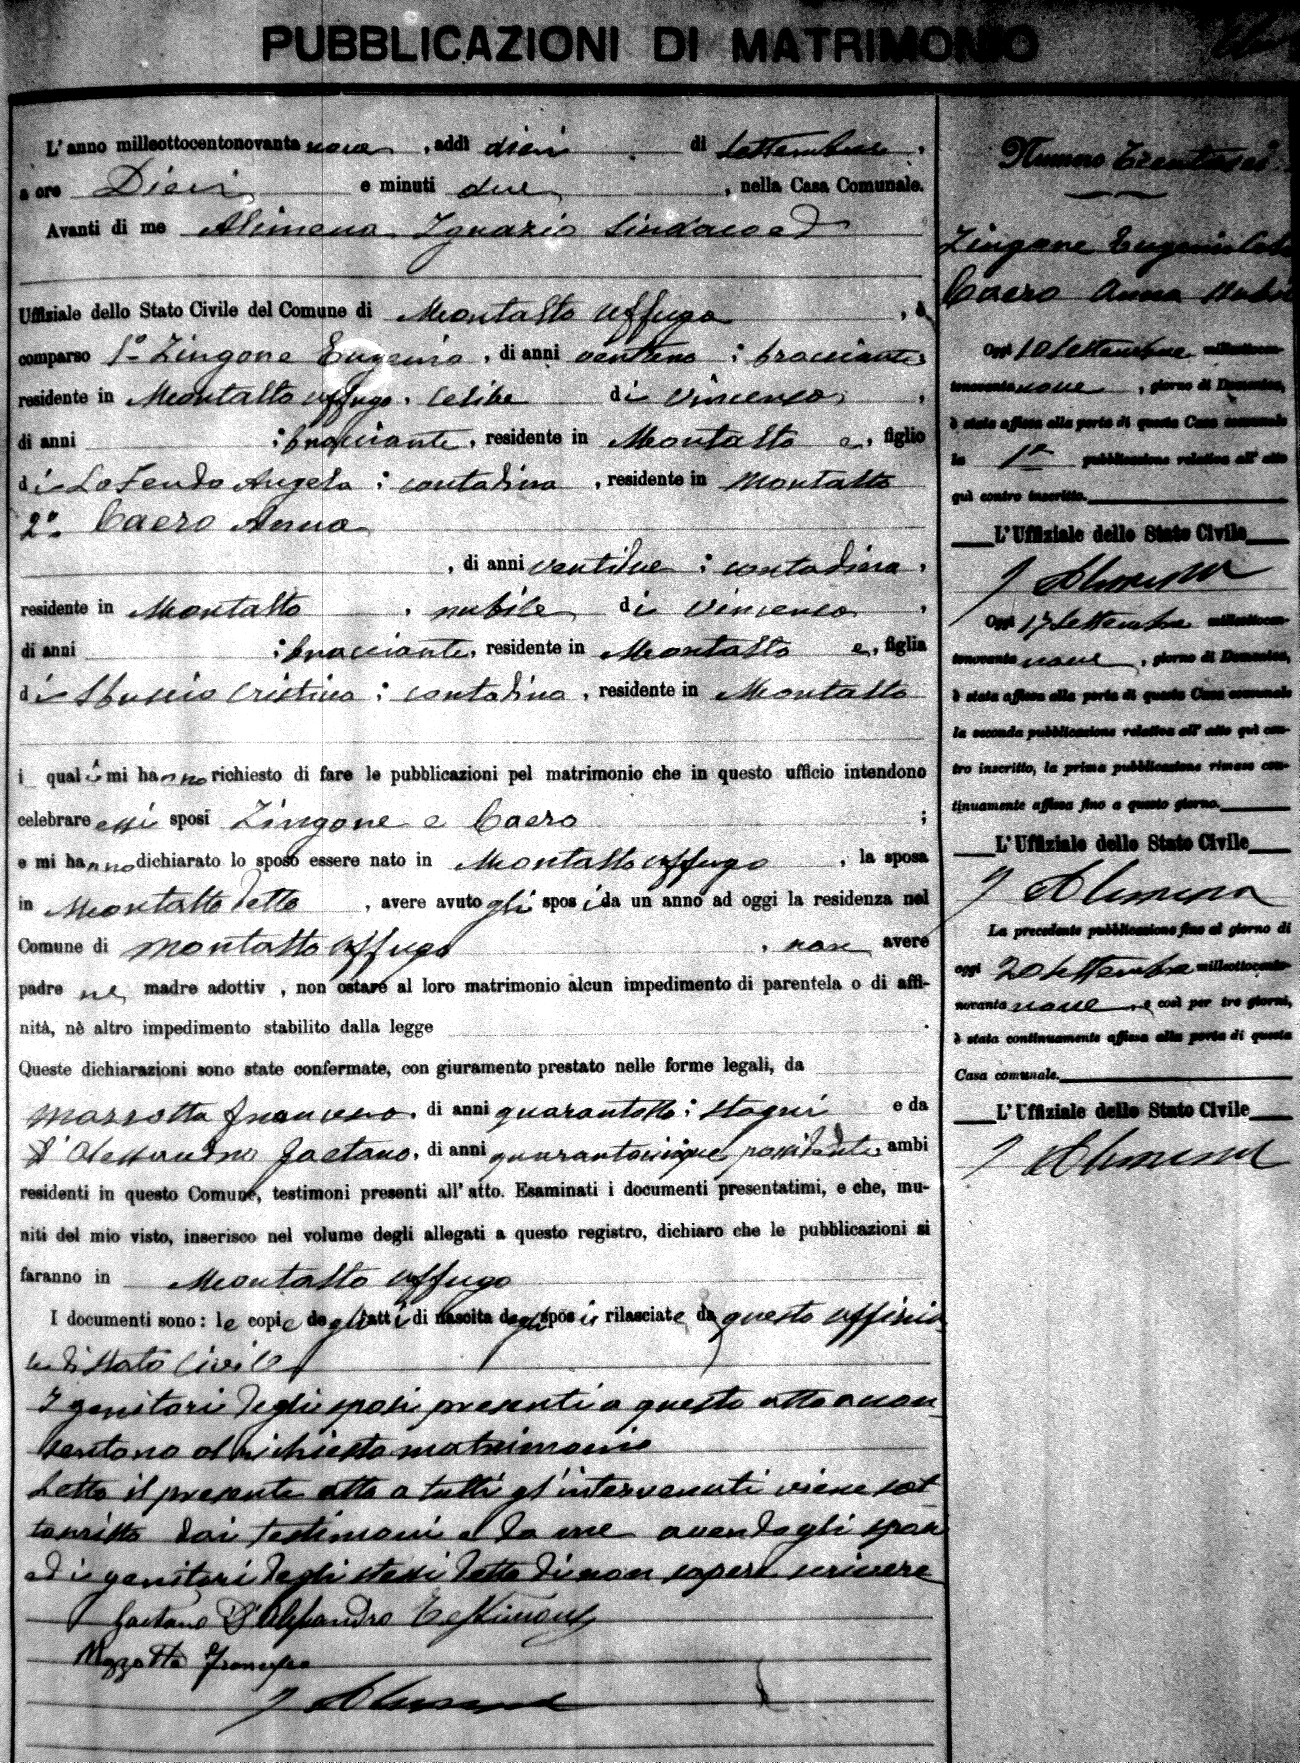 PUBBLICAZIONI DI MATRIMONIO
L'anno milleottocentonovanta nove, addì dieci di Settembre,
a ore Dieci e minuti due, nella Casa Comunale.
Avanti di me Alimena Ignazio Sindaco ed
Uffiziale dello Stato Civile del Comune di Montalto Uffugo, è
comparso 1° Zingone Eugenio, di anni ventuno; bracciante,
residente in Montalto Uffugo, celibe di Vincenzo,
di anni ; bracciante, residente in Montalto e, figlio
di Lofeudo Angela; contadina, residente in Montalto
2° Caero Anna
, di anni ventidue; contadina,
residente in Montalto, nubile di Vincenzo,
di anni ; bracciante, residente in Montalto e, figlia
di Cristina; contadina, residente in Montalto
i quali mi hanno richiesto di fare le pubblicazioni pel matrimonio che in questo ufficio intendono
celebrare essi sposi Zingone e Caero ;
e mi hanno dichiarato lo sposo essere nato in Montalto Uffugo, la sposa
in Montalto detto, avere avuto gli sposi da un anno ad oggi la residenza nel
Comune di Montalto Uffugo, non avere
padre ne madre adottiv , non ostare al loro matrimonio alcun impedimento di parentela o di affi-
nità, nè altro impedimento stabilito dalla legge .
Queste dichiarazioni sono state confermate, con giuramento prestato nelle forme legali, da
Mazzotta Francesco, di anni quarantotto; e da
D'Alessandro Gaetano, di anni quarantacinque, possidente, ambi
residenti in questo Comune, testimoni presenti all'atto. Esaminati i documenti presentatimi, e che, mu-
niti del mio visto, inserisco nel volume degli allegati a questo registro, dichiaro che le pubblicazioni si
faranno in Montalto Uffugo
I documenti sono: le copie degli atti di nascita degli sposi rilasciate da questo uffizio
di Stato Civile
I genitori degli sposi presenti a questo atto accon
sentono al richiesto matrimonio
Letto il presente atto a tutti gl'intervenuti viene sot
toscritto dai testimoni e da me avendo gli sposi
ed i genitori degli stessi detto di non sapere scrivere
Gaetano D'Alessandro Testimone
Mazzotta Francesco
I Alimena
Numero Trentasei
Zingone Eugenio
Caero Anna
Oggi 10 Settembre milleottocen-
tonovanta nove, giorno di Domenica,
è stata affissa alla porta di questa Casa comunale
la 1ª pubblicazione relativa all'atto
quì contro inscritto.
L'Uffiziale dello Stato Civile
I Alimena
Oggi 17 Settembre milleottocen-
tonovanta nove, giorno di Domenica,
è stata affissa alla porta di questa Casa comunale
la seconda pubblicazione relativa all'atto quì con-
tro inscritto, la prima pubblicazione rimase con-
tinuamente affissa fino a questo giorno.
L'Uffiziale dello Stato Civile
I Alimena
La precedente pubblicazione fino al giorno di
oggi 20 Settembre milleottocento-
novanta nove, e così per tre giorni,
è stata continuamente affissa alla porta di questa
Casa comunale.
L'Uffiziale dello Stato Civile
I Alimena